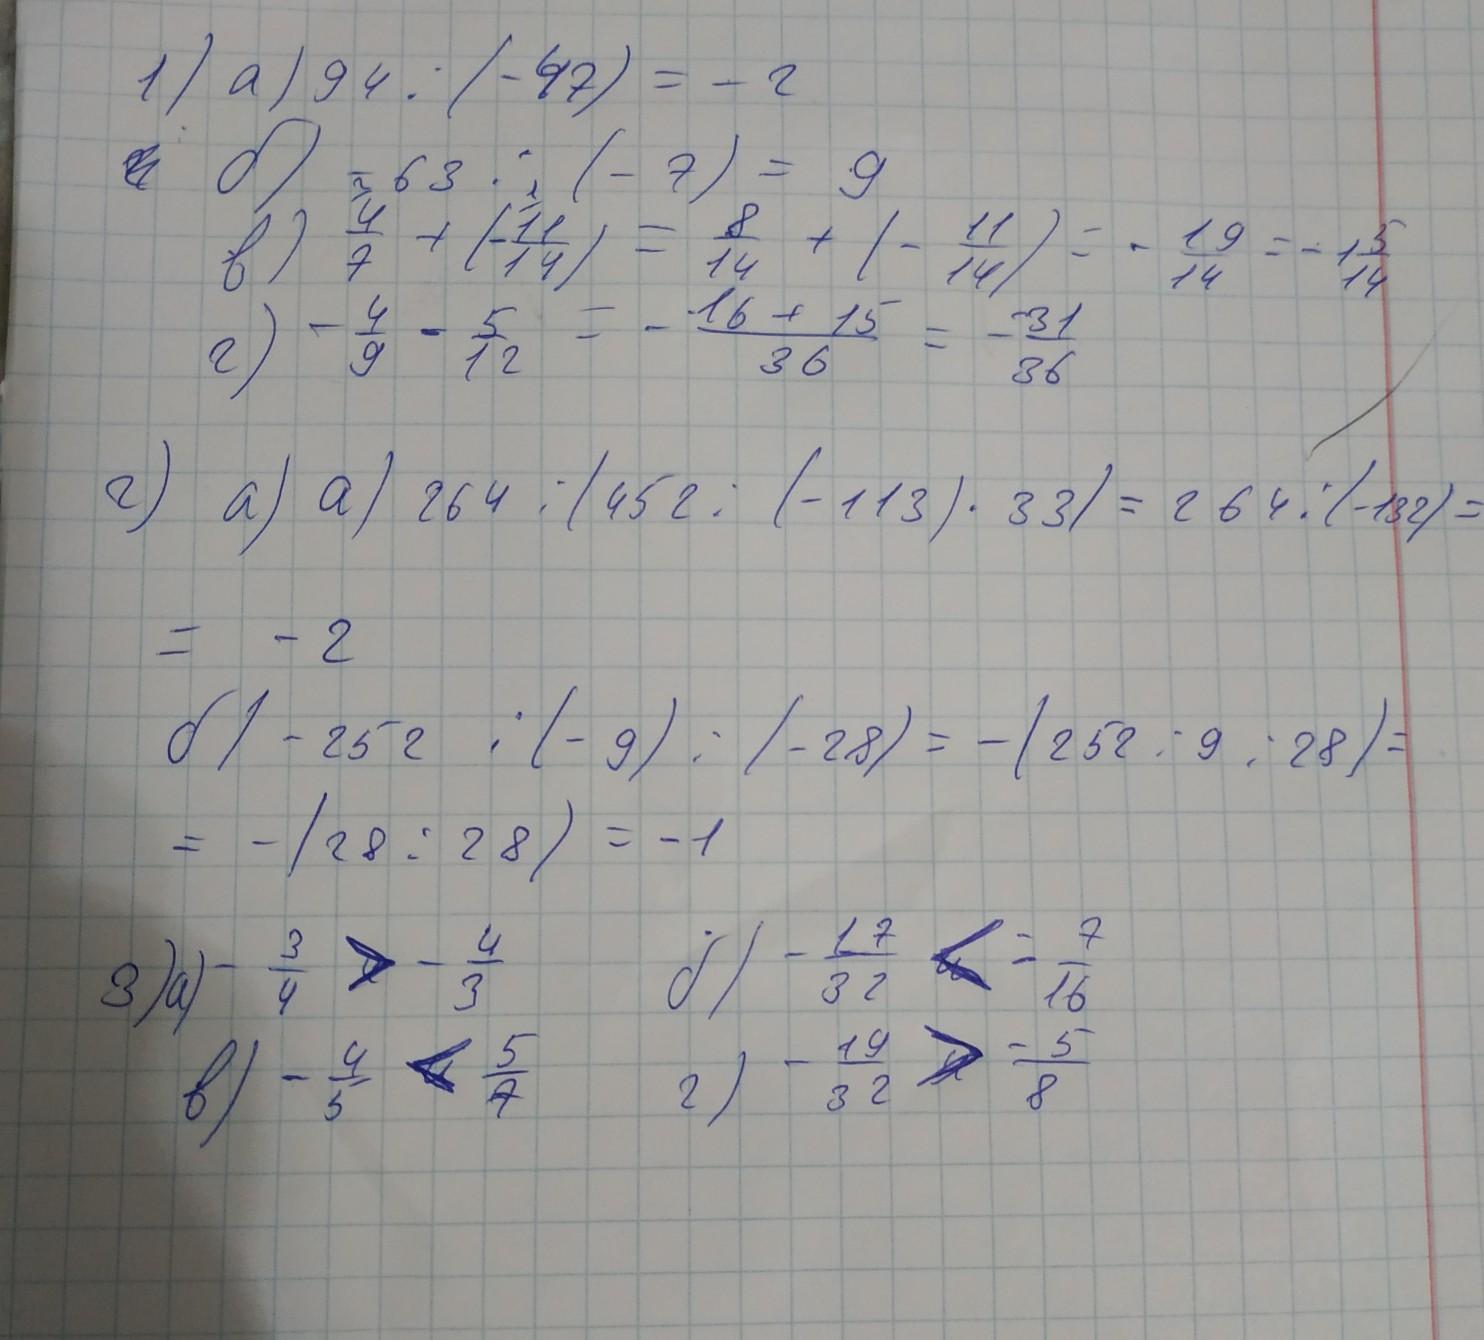 1) а) 94 : (-47) = - 2
б) - 63 : (- 7) = 9
в) 4/7 + (-11/14) = 8/14 + (- 11/14) = - 19/14 = - 1 5/14
г) - 4/9 - 5/12 = - 16 + 15/36 = - 31/36
2) а) а) 264 : (452 : (-113) · 33) = 264 : (-132) =
= - 2
б) - 252 : (- 9) : (- 28) = - (252 : 9 : 28) =
= - (28 : 28) = - 1
3) а) - 3/4 > - 4/3 б) - 17/32 < - 7/16
в) - 4/5 < 5/7 г) - 19/32 > - 5/8